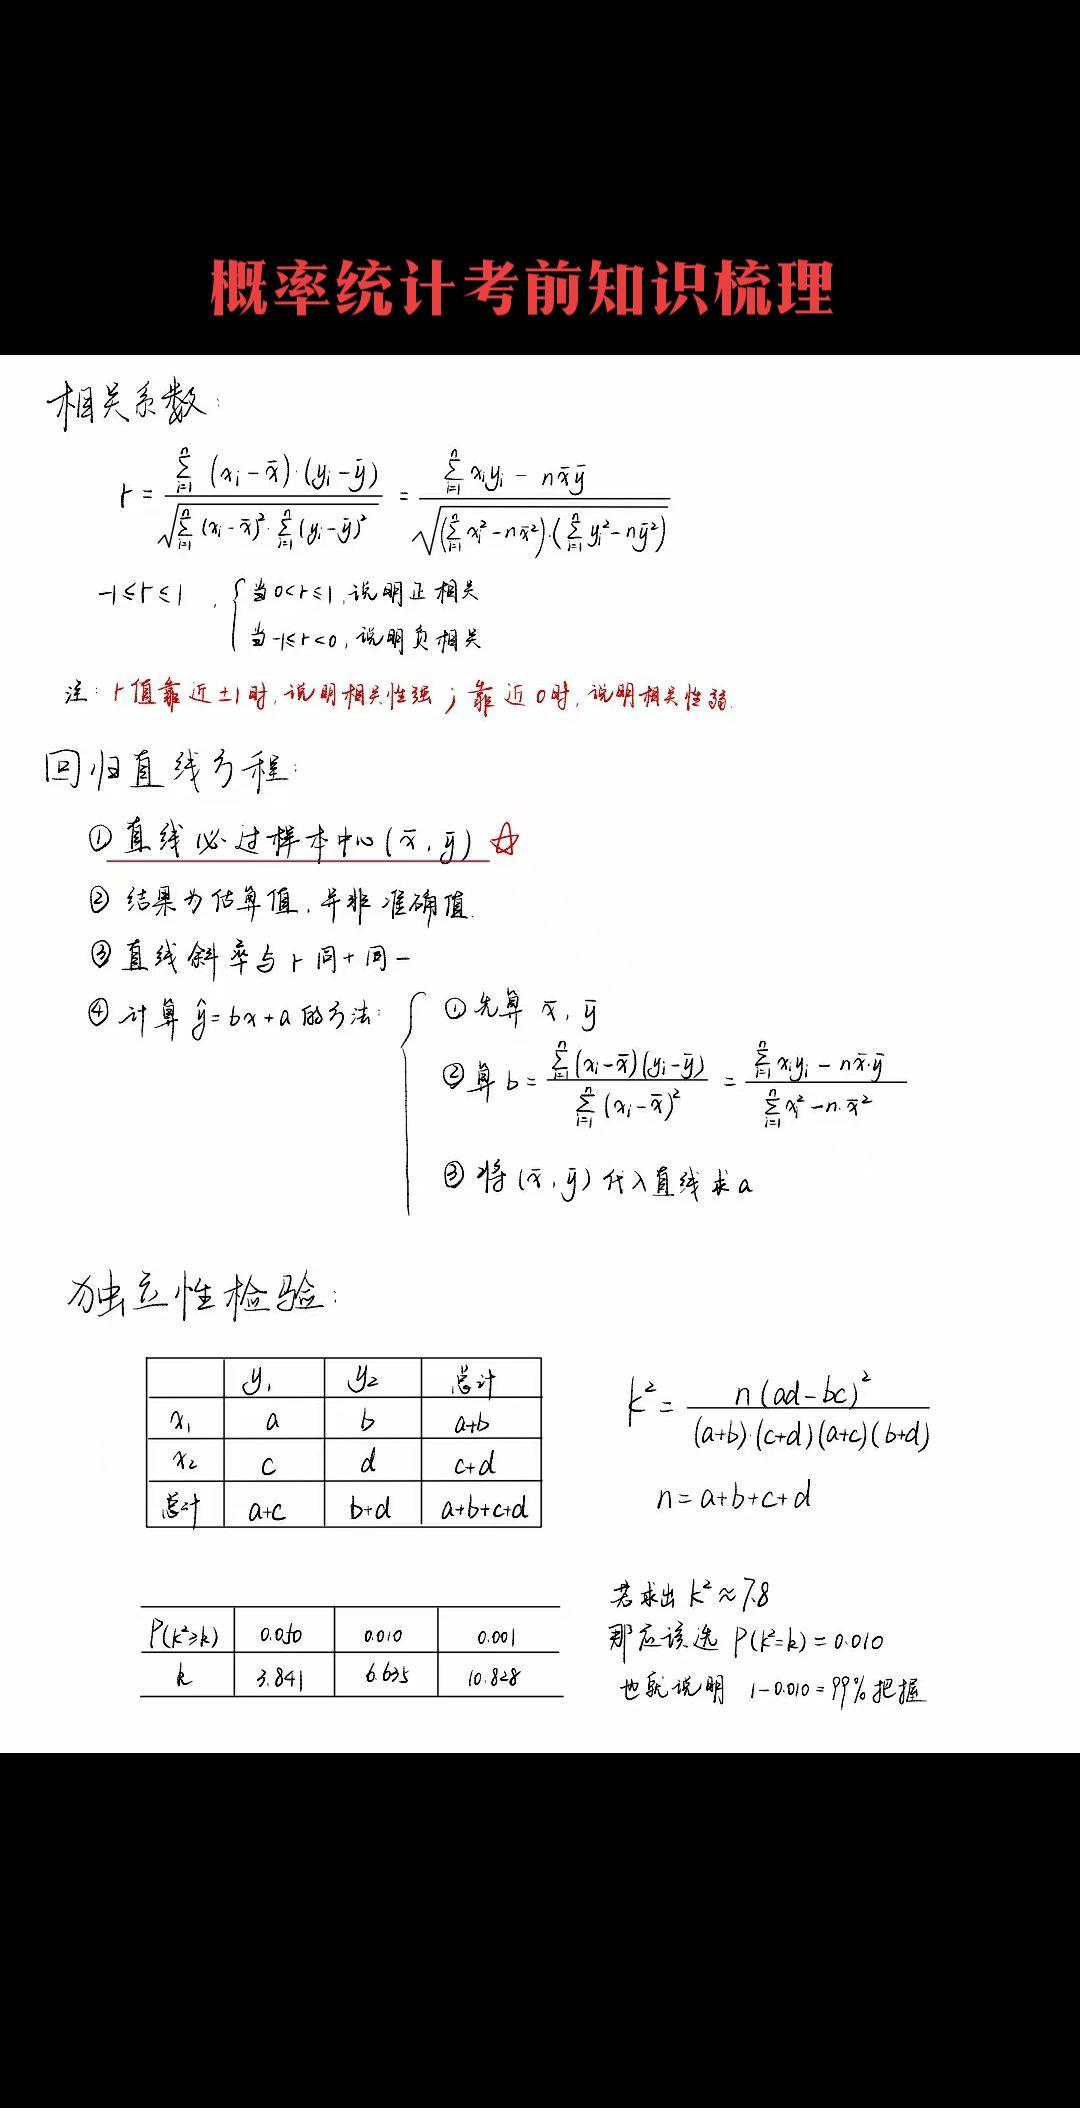 概率统计考前知识梳理
相关系数:
r = \frac{\sum_{i=1}^{n} (x_i - \bar{x}) \cdot (y_i - \bar{y})}{\sqrt{\sum_{i=1}^{n} (x_i - \bar{x})^2 \cdot \sum_{i=1}^{n} (y_i - \bar{y})^2}} = \frac{\sum_{i=1}^{n} x_i y_i - n\bar{x}\bar{y}}{\sqrt{(\sum_{i=1}^{n} x_i^2 - n\bar{x}^2) \cdot (\sum_{i=1}^{n} y_i^2 - n\bar{y}^2)}}
-1≤r≤1 , { 当0<r≤1,说明正相关
当-1≤r<0,说明负相关
注: r值靠近±1时,说明相关性强; 靠近0时,说明相关性弱.
回归直线方程:
① 直线必过样本中心(x̄, ȳ) ☆
② 结果为估算值,并非准确值.
③ 直线斜率与r同+同-
④ 计算 ŷ=bx+a 的方法: { ①先算 x̄, ȳ
②算 b = \frac{\sum_{i=1}^{n} (x_i - \bar{x})(y_i - \bar{y})}{\sum_{i=1}^{n} (x_i - \bar{x})^2} = \frac{\sum_{i=1}^{n} x_i y_i - n\bar{x} \cdot \bar{y}}{\sum_{i=1}^{n} x_i^2 - n \cdot \bar{x}^2}
③将(x̄, ȳ)代入直线求a
独立性检验:
y₁ y₂ 总计
x₁ a b a+b
x₂ c d c+d
总计 a+c b+d a+b+c+d
k² = \frac{n(ad-bc)^2}{(a+b)·(c+d)(a+c)(b+d)}
n=a+b+c+d
P(k²≥k) 0.050 0.010 0.001
k 3.841 6.635 10.828
若求出 k²≈7.8
那应该选 P(k²=k)=0.010
也就说明 1-0.010=99%把握